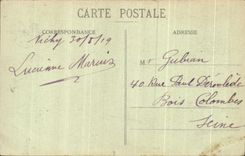 CARTE POSTALE
CORRESPONDANCE
ADRESSE
Vichy 30/5/19
Lucienne
Mr Gubian
40 Rue Paul Déroulède
Bois-Colombes
Seine